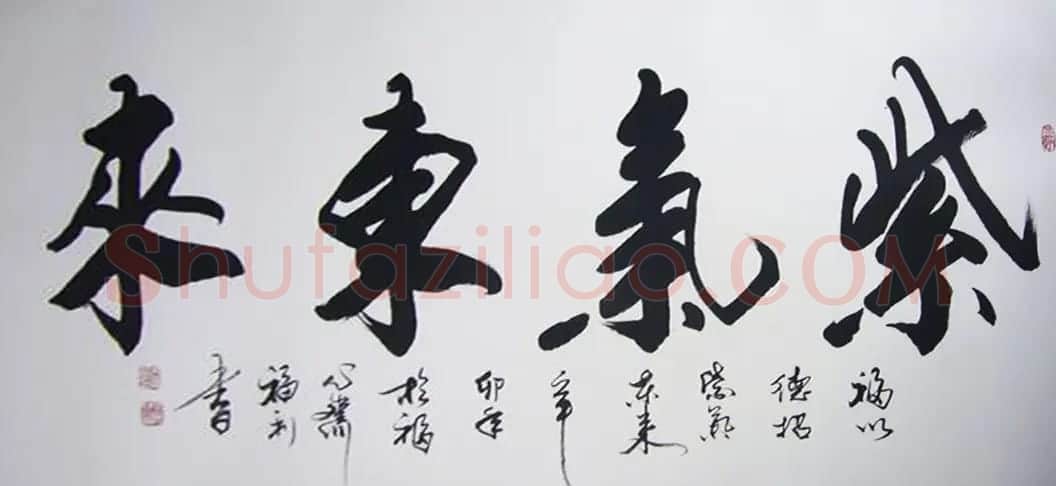 紫氣東來
福以
德招
紫氣
东来
辛
卯年
於福
心齋
福利
書
Shufaziliao.COM